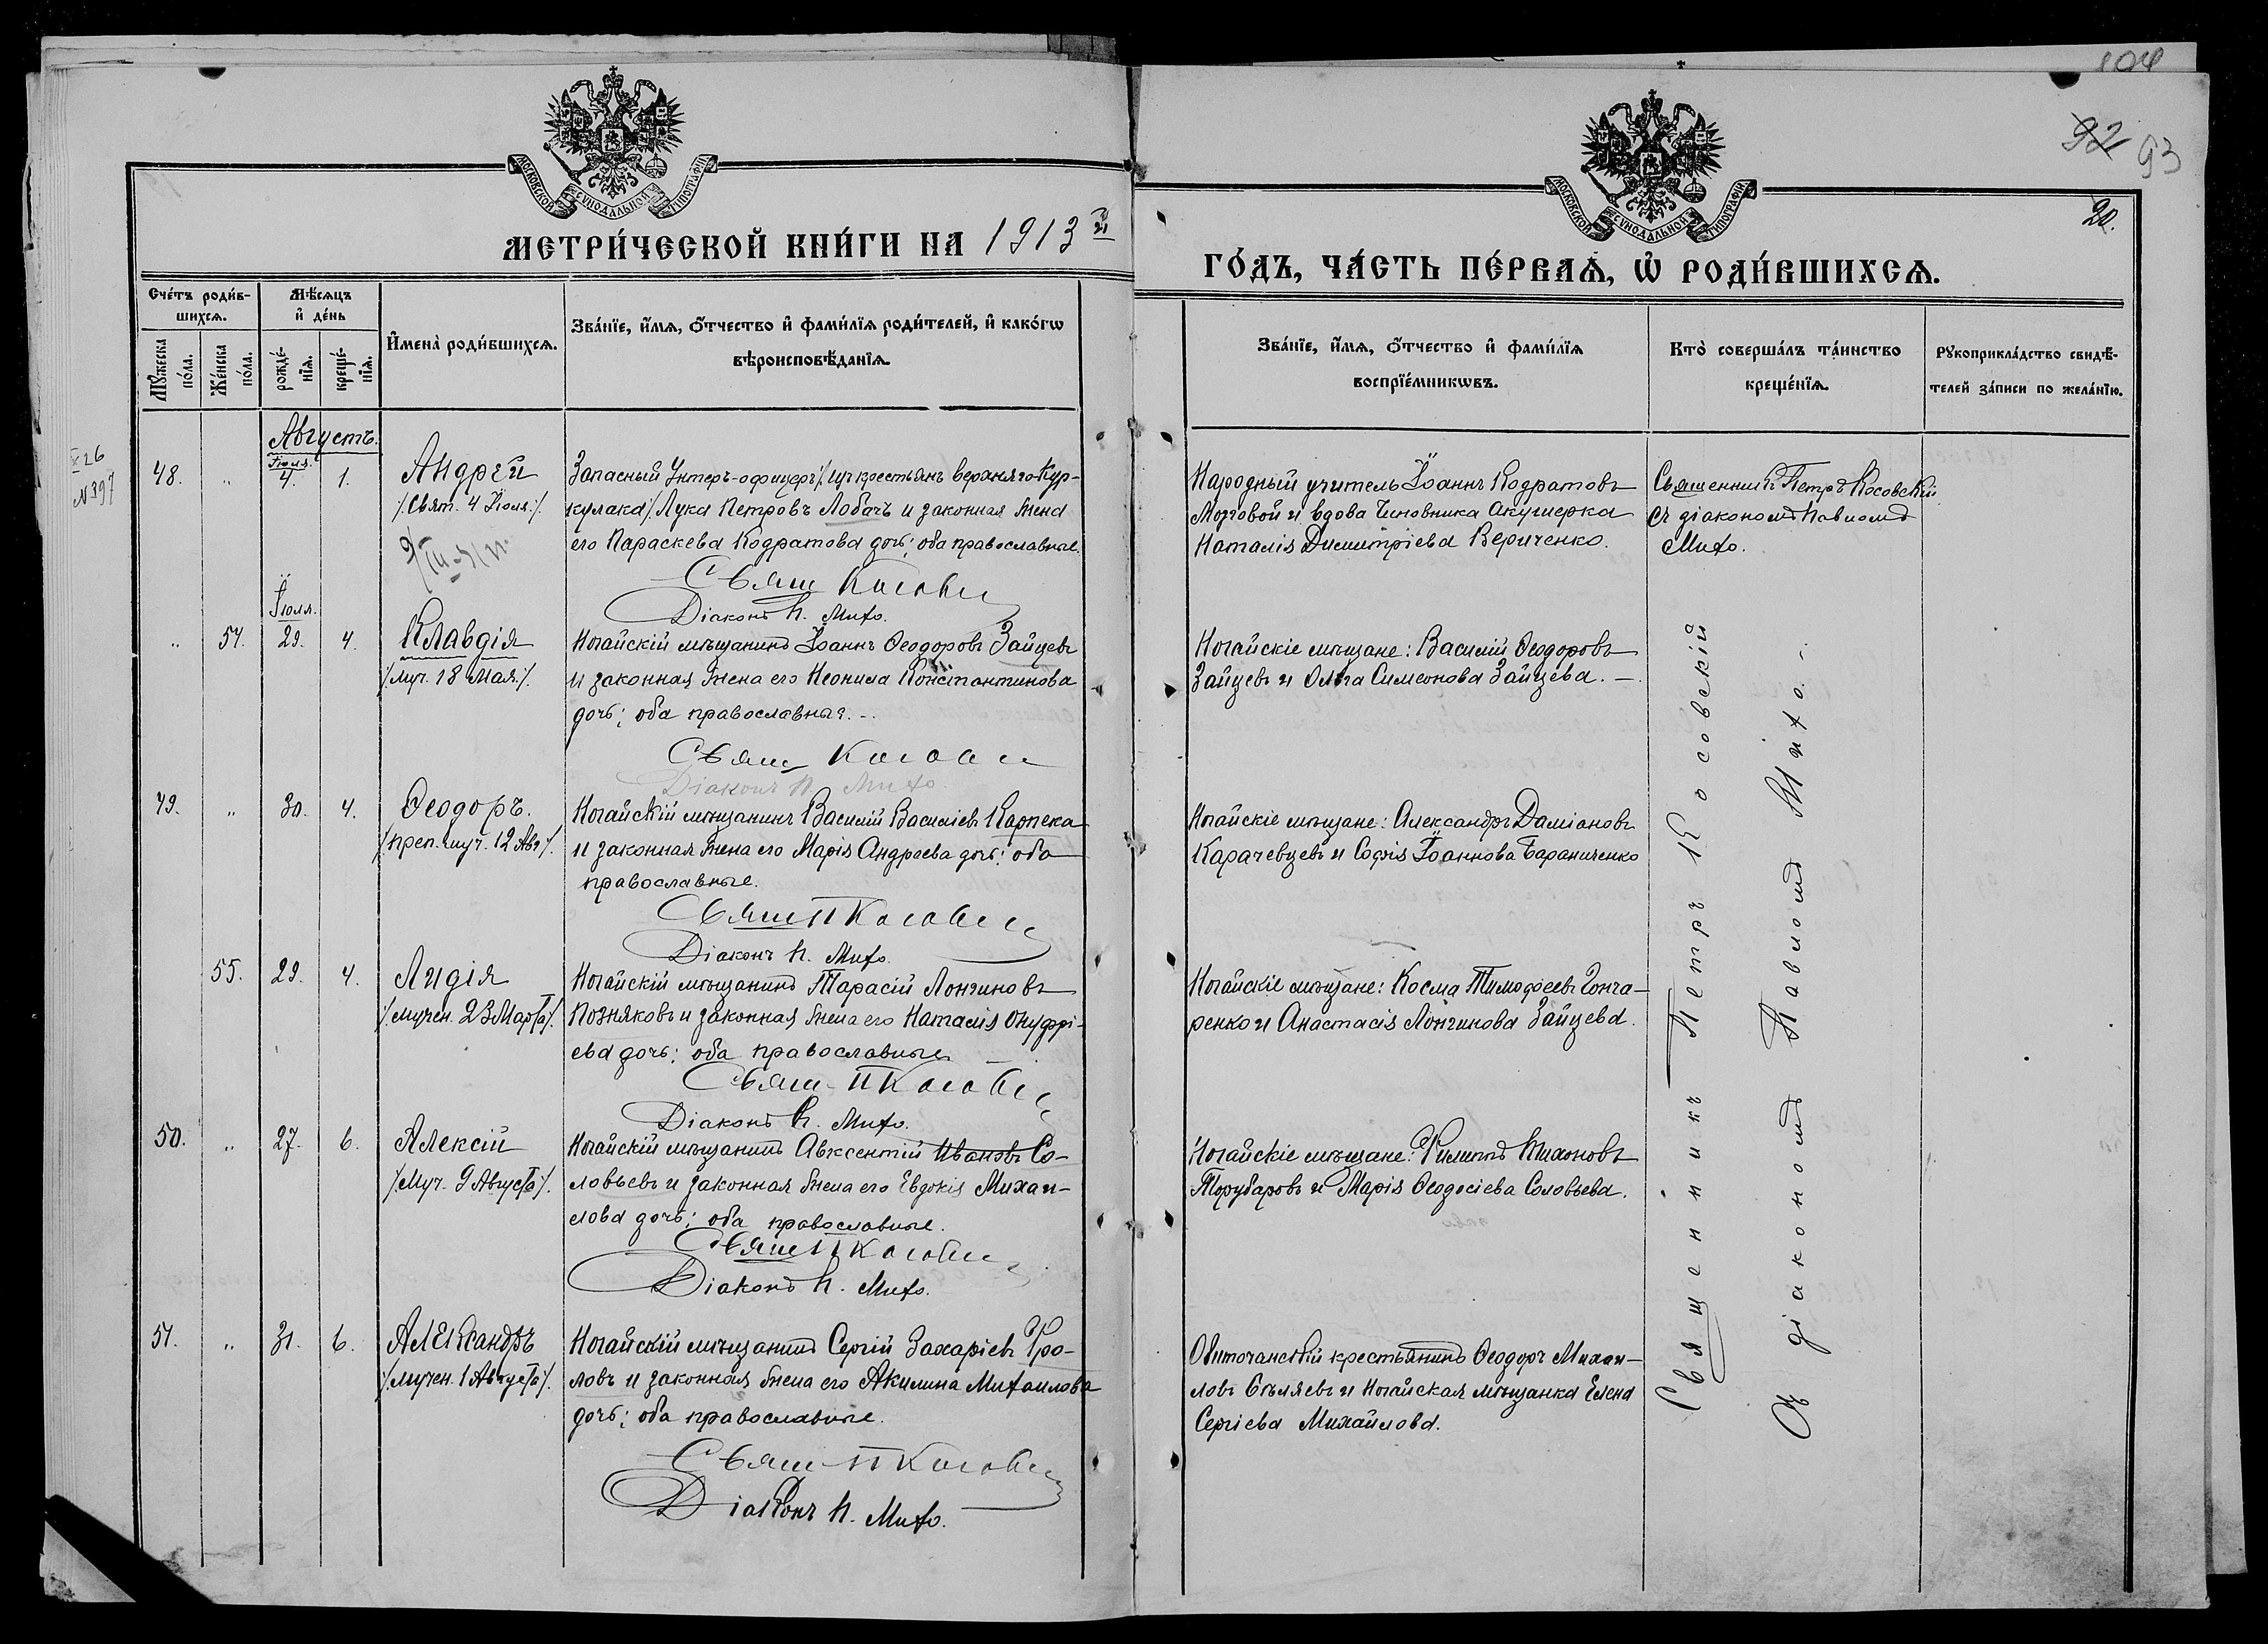 104
92 93
20.
МОСКОВСКОЙ СУНОДАЛЬНОЙ ТИПОГРАФІИ
МОСКОВСКОЙ СУНОДАЛЬНОЙ ТИПОГРАФІИ
МЕТРИ́ЧЕСКОЙ КНИ́ГИ НА 1913 й
ГО́ДЪ, ЧА́СТЬ ПЕ́РВАѦ, Ѡ҆ РОДИ́ВШИХСѦ.
Сче́тъ роди́в-
шихсѧ.
Мѣ́сѧцъ
и҆ де́нь
Мꙋ́жеска
по́ла.
Же́нска
по́ла.
рожде́-
нїѧ.
креще́-
нїѧ.
И҆мена̀ роди́вшихсѧ.
Зва́нїе, и҆́мѧ, ѻ҆́тчество и҆ фами́лїѧ роди́телей, и҆ како́гѡ
вѣроисповѣ́данїѧ.
Зва́нїе, и҆́мѧ, ѻ҆́тчество и҆ фами́лїѧ
воспрїе́мникѡвъ.
Кто̀ соверша́лъ та́инство
креще́нїѧ.
Рꙋкоприкла́дство свидѣ́-
телей за́писи по жела́нїю.
Августъ.
№397
48. „ Іюля. 4. 1. Андрей
/Свят. 4 Іюля./
Запасный Унтеръ-офицеръ /изъ крестьянъ Верхняго Кур-
кулака/ Лука Петровъ Лобачъ и законная жена
его Параскева Кодратова дочь; оба православные.
Свящ Косовск
Діаконъ П. Михо.
Народный учитель Іоаннъ Кодратовъ
Мозговой и вдова Чиновника Акушерка
Наталія Димитріева Вериченко.
Священникъ Петръ Косовскій
съ діакономъ Павломъ
Михо.
Іюля.
„ 54. 29. 4. Клавдія
/муч. 18 Мая./
Ногайскій мѣщанинъ Іоаннъ Ѳеодоровъ Зайцевъ
и законная жена его Неонила Константинова
дочь; оба православныя.
Свящ Косовск
Діаконъ П. Михо
Ногайскіе мѣщане: Василій Ѳеодоровъ
Зайцевъ и Ольга Симеонова Зайцева. —
49. „ 30. 4. Ѳеодоръ.
/преп. муч. 12 Авг/.
Ногайскій мѣщанинъ Василій Василіевъ Карпека
и законная жена его Марія Андреева дочь; оба
православные.
Свящ П Косовск
Діаконъ П. Михо.
Ногайскіе мѣщане: Александръ Даміановъ
Карачевцевъ и Софія Іоаннова Бараниченко
55. 29. 4. Лидія
/мучен. 23 Марта/.
Ногайскій мѣщанинъ Тарасій Лонгиновъ
Позняковъ и законная жена его Наталія Онуфрі-
ева дочь; оба православные
Свящ П Косовск
Діаконъ П. Михо.
Ногайскіе мѣщане: Косма Тимофеевъ Гонча-
ренко и Анастасія Лонгинова Зайцева.
50. „ 27. 6. Алексій
/Муч. 9 Августа/.
Ногайскій мѣщанинъ Авксентій Ивановъ Со-
ловьевъ и законная жена его Евдокія Михаи-
лова дочь; оба православные.
Свящ П Косовск
Діаконъ П. Михо.
Ногайскіе мѣщане: Филиппъ Тихоновъ
Торубаровъ и Марія Ѳеодосіева Соловьева.
51. „ 31. 6. Александръ
/мучен. 1 Августа/.
Ногайскій мѣщанинъ Сергій Захаріевъ Фро-
ловъ и законная жена его Акилина Михаилова
дочь; оба православные.
Свящ П Косовск
Діаконъ П. Михо.
Обиточанскій крестьянинъ Ѳеодоръ Михаи-
ловъ Бѣляевъ и Ногайская мѣщанка Елена
Сергіева Михайлова.
Священникъ Петръ Косовскій
Съ діакономъ Павломъ Михо.